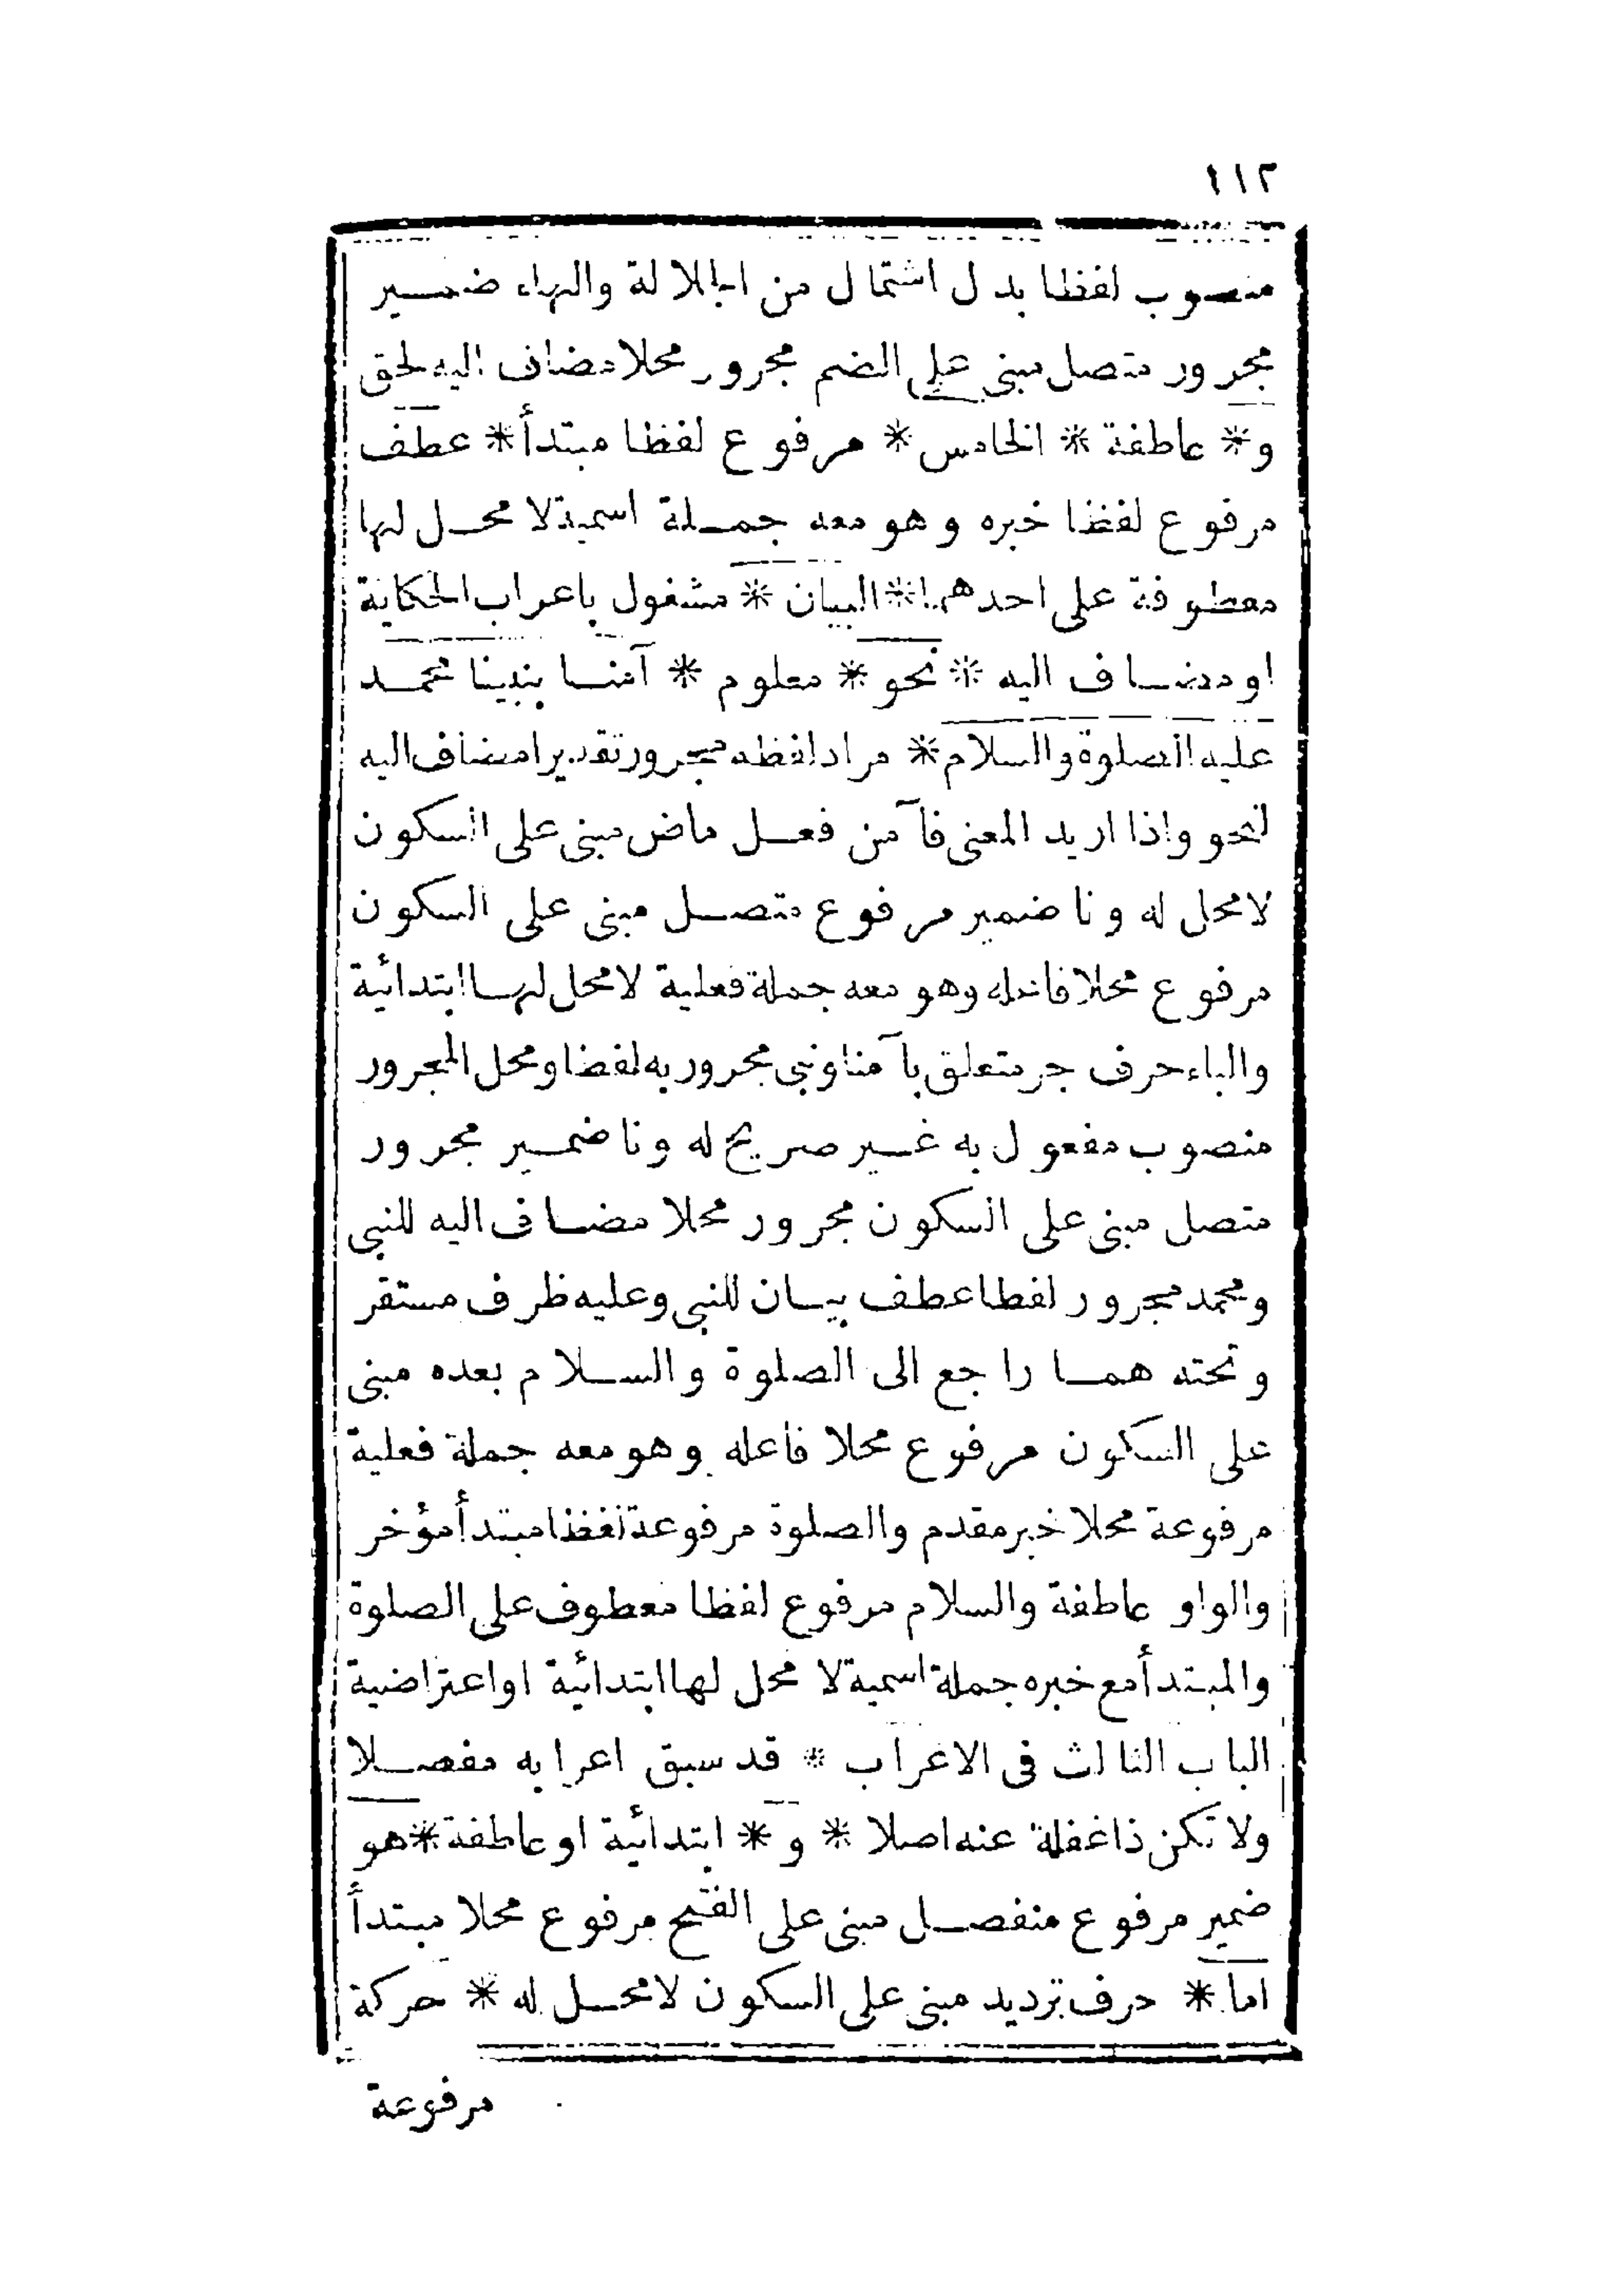 ١١٢
منصوب لفظا بدل اشتمال من الجلالة والهاء ضمير
مجرور متصل مبنى على الضم مجرور محلا مضاف اليه لحق
و* عاطفة * الخامس * مرفوع لفظا مبتدأ * عطف
مرفوع لفظا خبره وهو معه جملة اسمية لا محل لها
معطوفة على احدهما * البيان * مشغول باعراب الحكاية
او مضاف اليه * نحو * معلوم * آمنا بنبينا محمد
عليه الصلوة والسلام * مراد لفظه مجرور تقديرا مضاف اليه
لنحو واذا اريد المعنى فآمن فعل ماض مبنى على السكون
لا محل له ونا ضمير مرفوع متصل مبنى على السكون
مرفوع محلا فاعله وهو معه جملة فعلية لا محل لها ابتدائية
والباء حرف جر متعلق بآمنا ونبى مجرور به لفظا ومحل المجرور
منصوب مفعول به غير صريح له ونا ضمير مجرور
متصل مبنى على السكون مجرور محلا مضاف اليه للنبى
ومحمد مجرور لفظا عطف بيان للنبى وعليه ظرف مستقر
وتحته هما راجع الى الصلوة والسلام بعده مبنى
على السكون مرفوع محلا فاعله وهو معه جملة فعلية
مرفوعة محلا خبر مقدم والصلوة مرفوعة لفظا مبتدأ مؤخر
والواو عاطفة والسلام مرفوع لفظا معطوف على الصلوة
والمبتدأ مع خبره جملة اسمية لا محل لها ابتدائية او اعتراضية
الباب الثالث فى الاعراب * قد سبق اعرابه مفصلا
ولا تكن ذا غفلة عنه اصلا * و * ابتدائية او عاطفة * هو
ضمير مرفوع منفصل مبنى على الفتح مرفوع محلا مبتدأ
اما * حرف ترديد مبنى على السكون لا محل له * حركة
مرفوعة